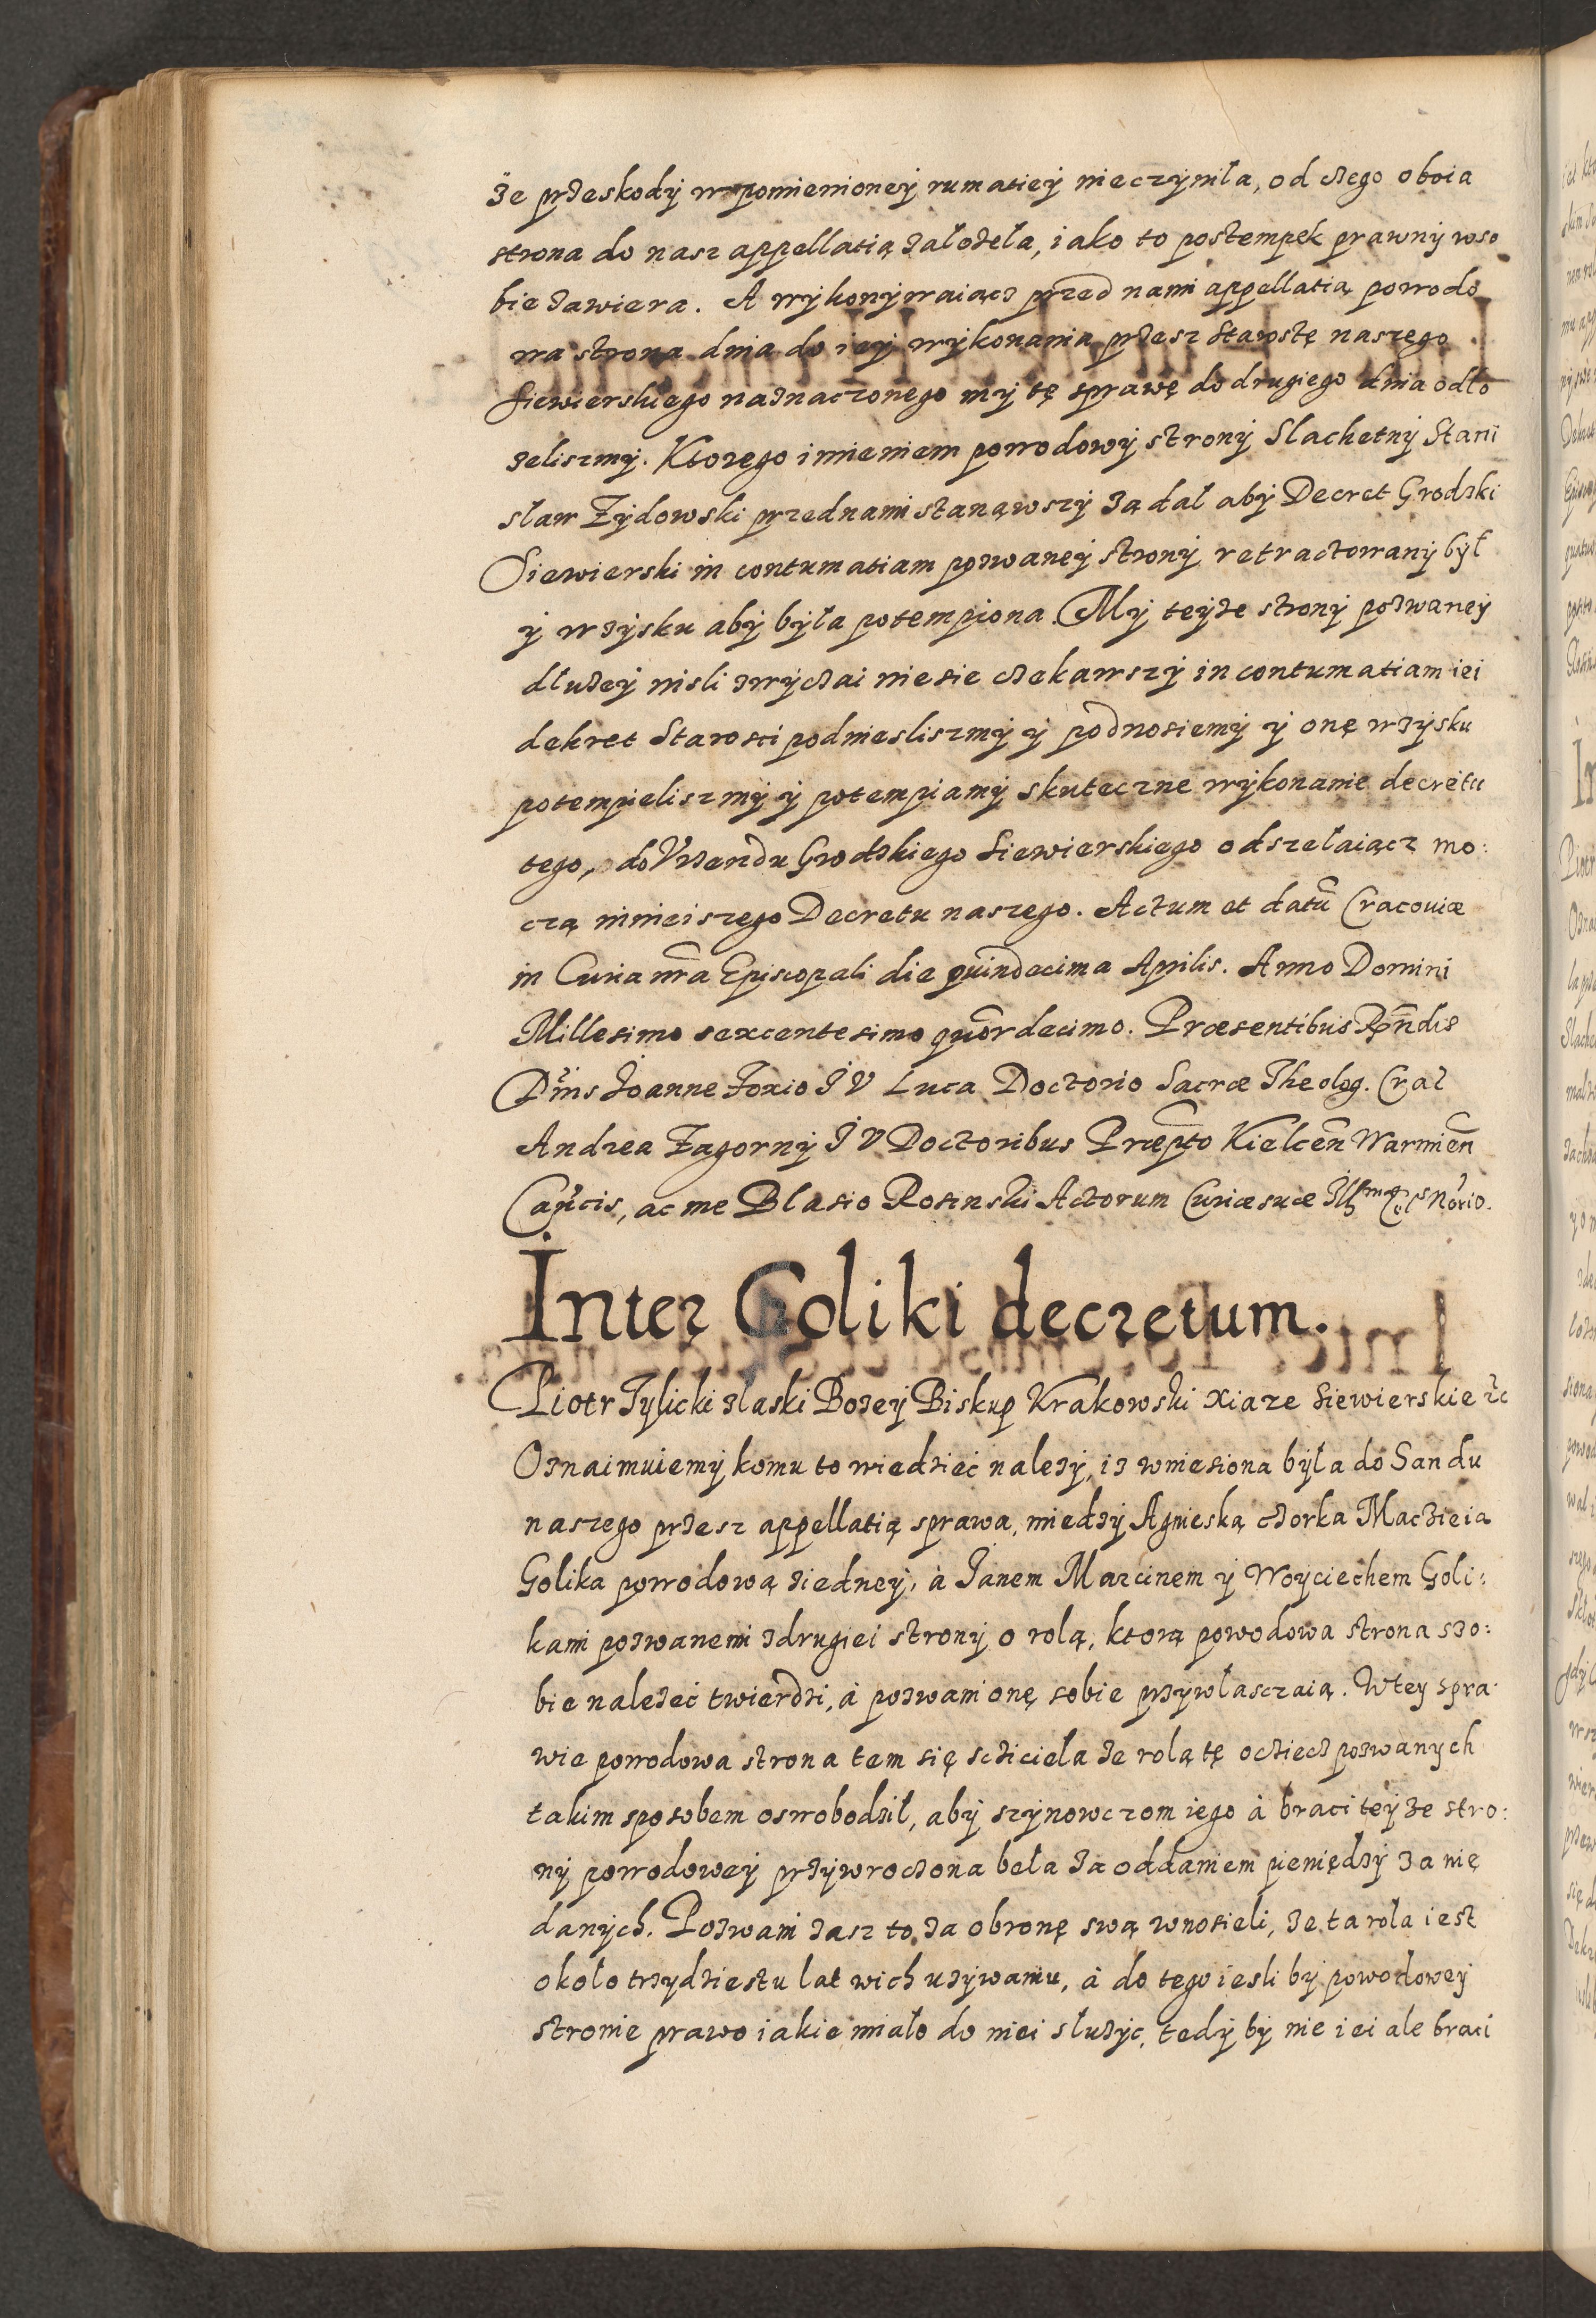 że przeskody wpomienioney rumatiey nieczyniła, od czego oboia
strona do nasz appellatią założeła, iako to postempek prawny wso
bie zawiera. A wykonywaiącz przed nami appellatią powodo
wa strona dnia do iey wykonania przesz Starostę naszego
Siewierskiego naznaczonego my tę sprawę do drugiego dnia odło
zeliszmy. Ktorego imieniem powodowy strony Slachetny Stani
slaw Zydowski przednami stanąwszy ządał aby Decret Grodzki
Siewierski in contumatiam pozwaney strony retractowany był
y wzysku aby była potempiona. My teyze strony pozwaney
dluzey nisli zwyczai niesie czekawszy in contumatiam iei
dekret Starosci podniesliszmy y podnosiemy y onę wzysku
potempieliszmy y potempiamy skuteczne wykonanie decretu
tego, do Vrzendu Grodzkiego Siewierskiego odszelaiącz mo:
czą ninieiszego Decretu naszego. Actum et datũ Cracouiæ
in Curia nrã Episcopali die quindecima Aprilis. Anno Domini
Millesimo sexcentesimo quõrdecimo. Præsentibus Rñdis
Dñis Ioanne Foxio I V Luca Doctorio Sacræ Theolog. Crac
Andrea Zagorny I V Doctoribus Præpto Kielceñ Warmieñ
Cañcis, ac me Blasio Rosinski Actorum Curiæ suæ Illmæ Cels Notrio.
Inter Goliki decretum.
Piotr Tylicki zlaski Bozey Biskup Krakowski Xiaze Siewierskie &c
Oznaimuiemy komu to wiedzieć nalezy, iz wniesiona była do Sandu
naszego przesz appellatią sprawa, miedzy Agnieską czorka Maczieia
Golika powodową ziedney, à Ianem Marcinem y Woyciechem Goli:
kami pozwanemi zdrugiei strony o rolą, ktorą powodowa strona szo:
bie nalezeć twierdzi, à pozwani onę sobie przywłasczaią. W tey spra
wie powodowa strona tem się scziciela ze rolą tę ocziecz pozwanych
takim sposobem oswobodził, aby szynowczom iego à braci tey ze stro:
ny powodowey przywroczona beła za oddaniem pieniędzy za nię
danych. Pozwani zasz to za obronę swą wnosieli, ze ta rola iest
około trzydziestu lat wich uzywaniu, à do tego iesli by powodowey
stronie prawo iakie miało do niei sluzyc, tedy by nie iei ale braci